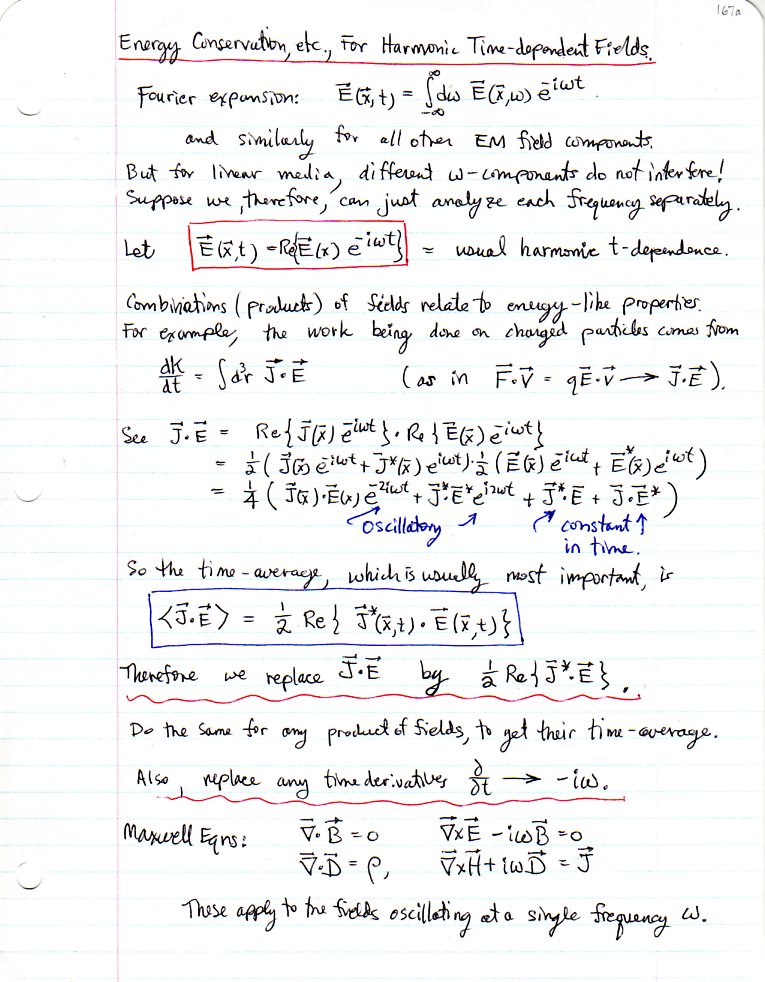 167a
Energy Conservation, etc., For Harmonic Time-dependent Fields.
Fourier expansion: E⃗(x⃗,t) = ∫_{-∞}^{∞} dω E⃗(x⃗,ω) e^{-iωt}
and similarly for all other EM field components.
But for linear media, different ω-components do not interfere!
Suppose we, therefore, can just analyze each frequency separately.
Let E⃗(x⃗,t) = Re{E⃗(x) e^{-iωt}} = usual harmonic t-dependence.
Combinations (products) of fields relate to energy-like properties.
For example, the work being done on charged particles comes from
dK/dt = ∫d³r J⃗·E⃗ (as in F⃗·V⃗ = qE⃗·v⃗ ⟶ J⃗·E⃗).
See J⃗·E⃗ = Re{J⃗(x⃗) e^{-iωt}}·Re{E⃗(x⃗) e^{-iωt}}
= ½(J⃗(x⃗) e^{-iωt} + J⃗*(x⃗) e^{iωt})·½(E⃗(x⃗) e^{-iωt} + E⃗*(x⃗) e^{iωt})
= ¼(J⃗(x⃗)·E⃗(x) e^{-2iωt} + J⃗*·E⃗* e^{i2ωt} + J⃗*·E⃗ + J⃗·E⃗*)
oscillatory constant
in time.
So the time-average, which is usually most important, is
<J⃗·E⃗> = ½ Re{ J⃗*(x⃗,t)·E⃗(x⃗,t)}
Therefore we replace J⃗·E⃗ by ½ Re{J⃗*·E⃗}.
Do the same for any product of fields, to get their time-average.
Also, replace any time derivatives ∂/∂t ⟶ -iω.
Maxwell Eqns: ∇⃗·B⃗ = 0 ∇⃗×E⃗ - iωB⃗ = 0
∇⃗·D⃗ = ρ, ∇⃗×H⃗ + iωD⃗ = J⃗
These apply to the fields oscillating at a single frequency ω.